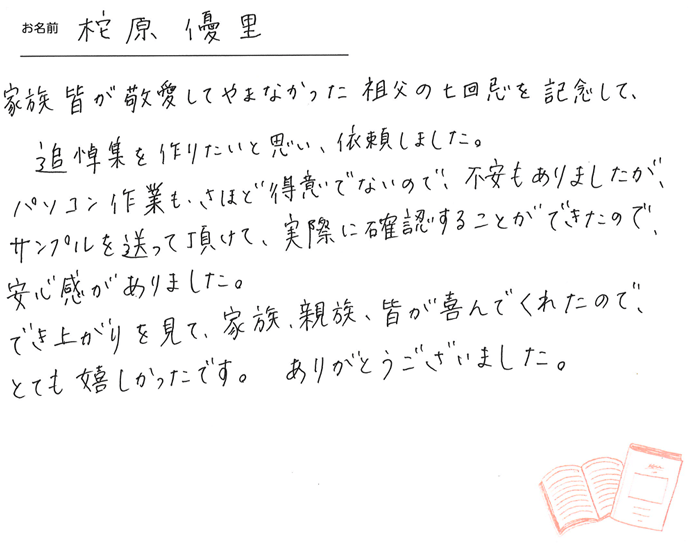 お名前 柁原 優里
家族皆が敬愛してやまなかった祖父の七回忌を記念して、
追悼集を作りたいと思い、依頼しました。
パソコン作業も、さほど得意でないので、不安もありましたが、
サンプルを送って頂けて、実際に確認することができたので、
安心感がありました。
でき上がりを見て、家族、親族、皆が喜んでくれたので、
とても嬉しかったです。 ありがとうございました。